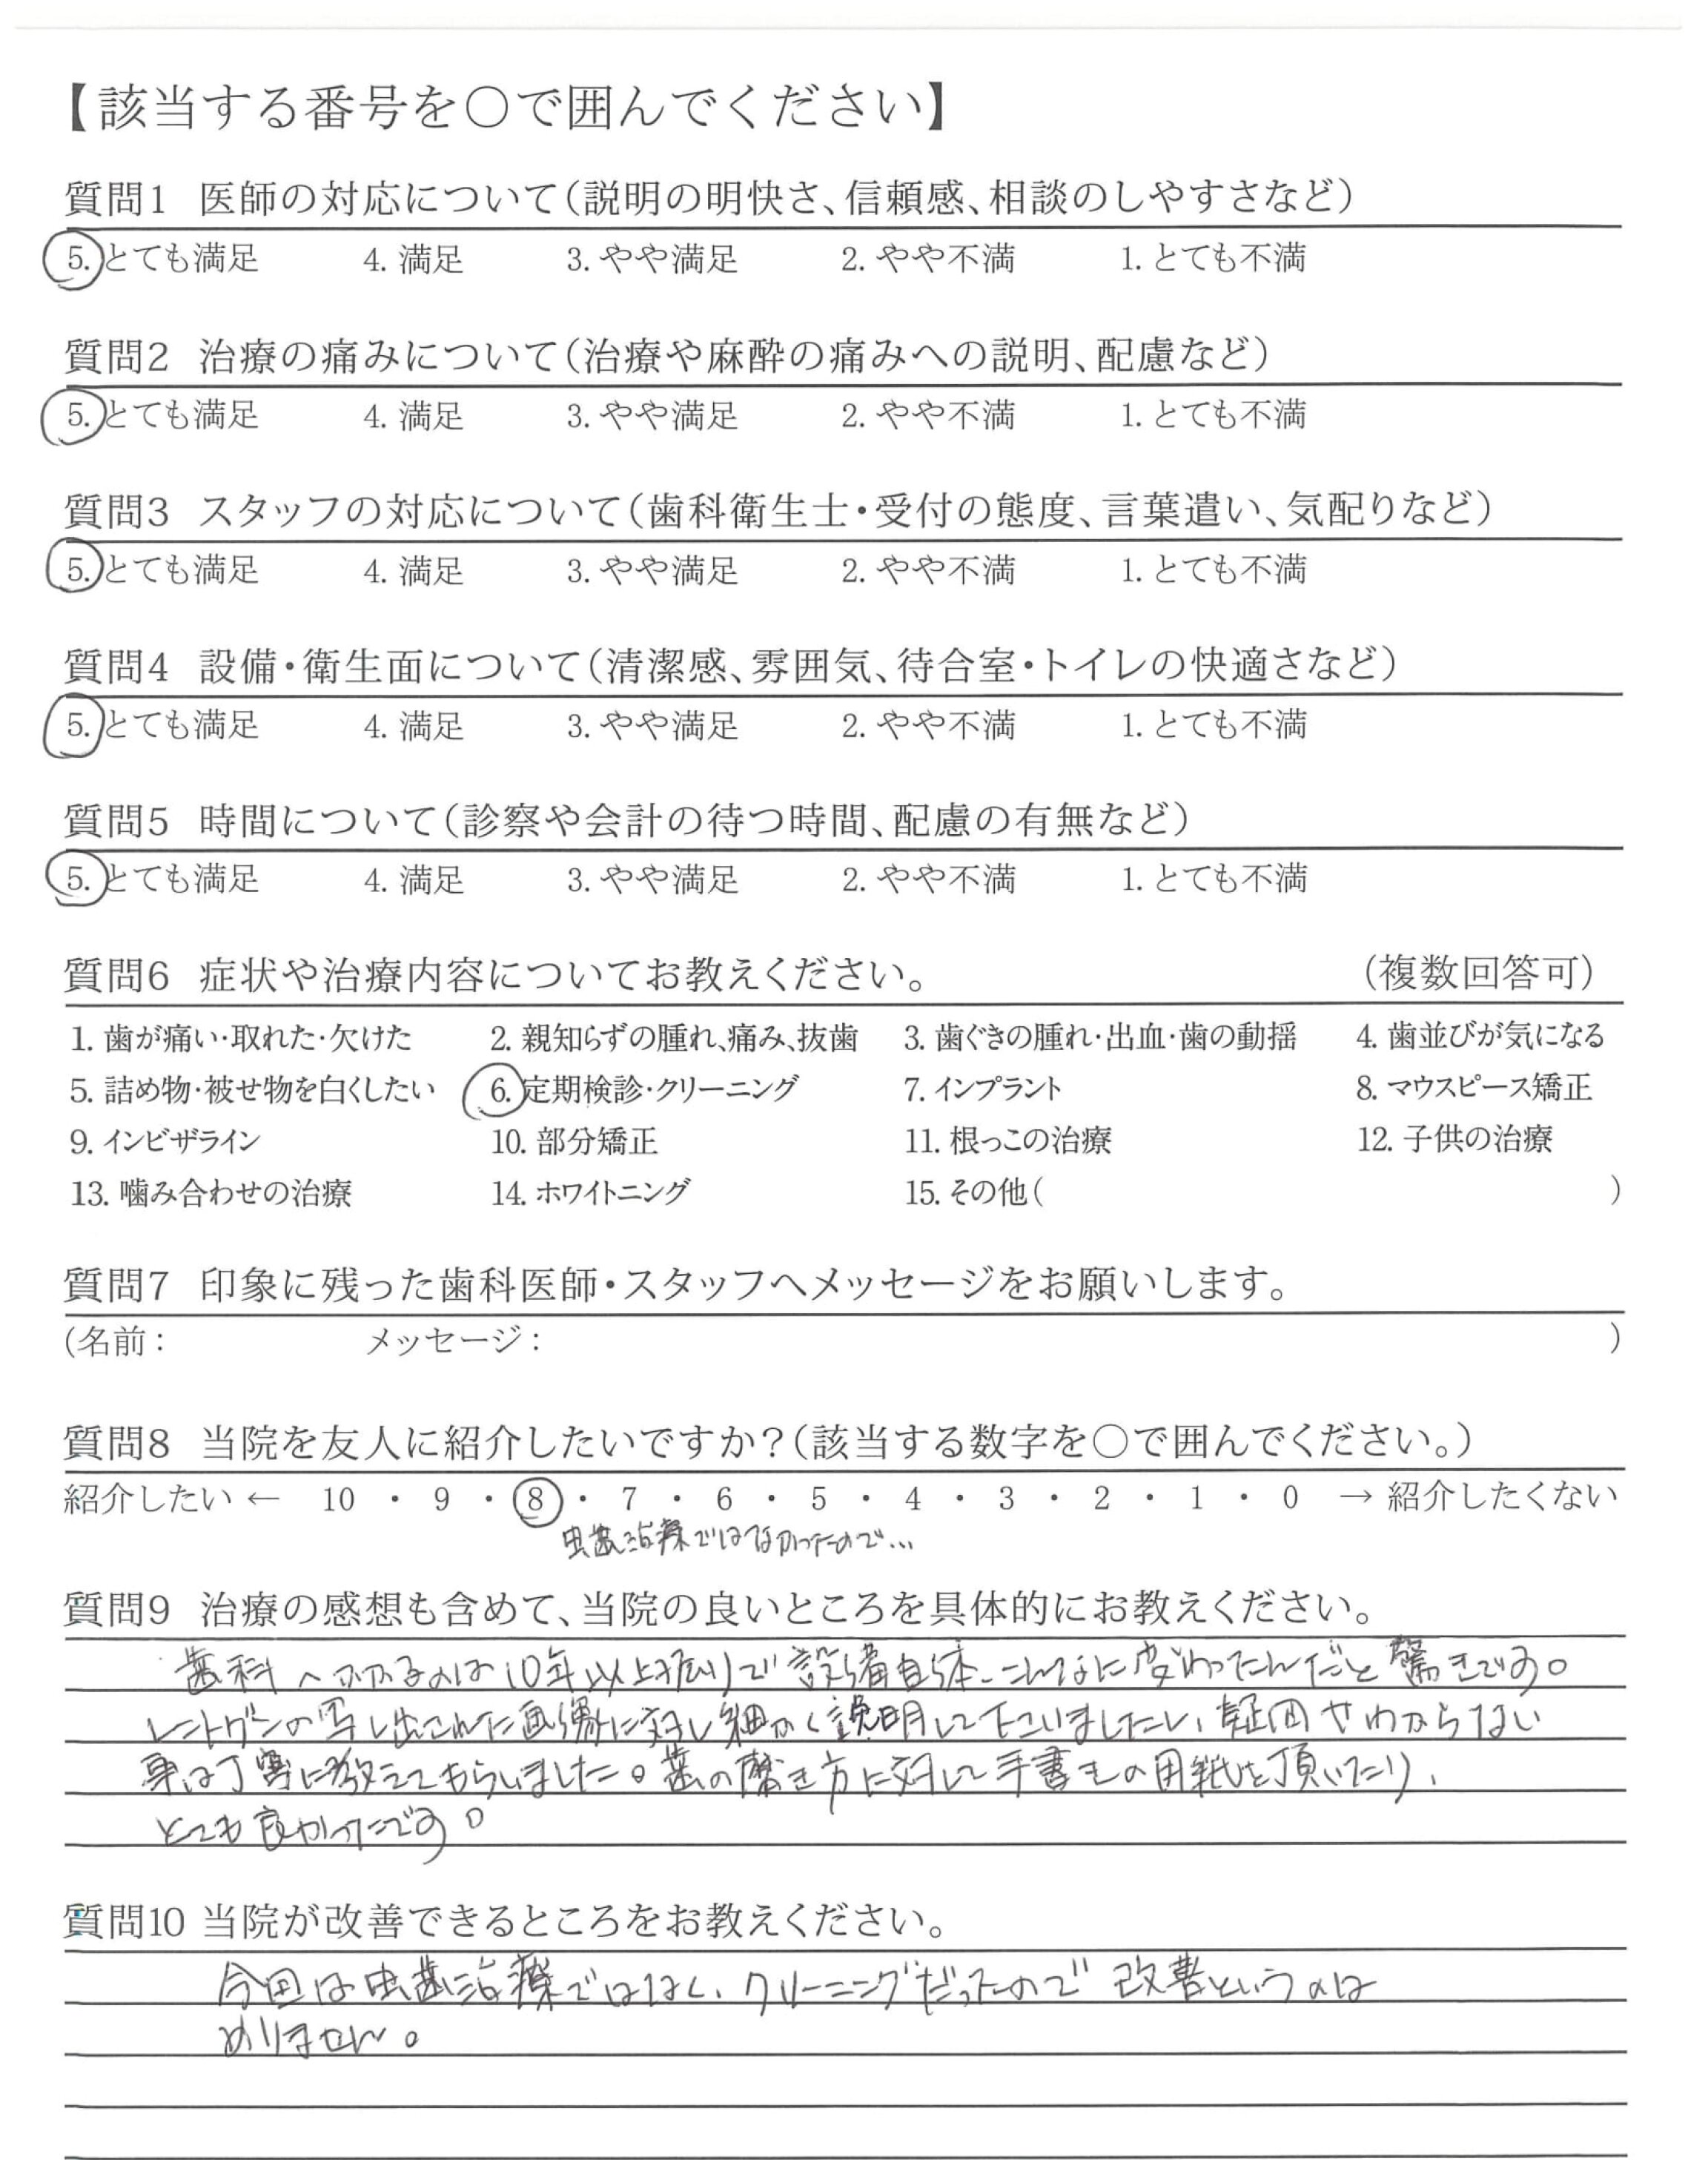 【該当する番号を○で囲んでください】
質問1 医師の対応について(説明の明快さ、信頼感、相談のしやすさなど)
5. とても満足 4. 満足 3. やや満足 2. やや不満 1. とても不満
質問2 治療の痛みについて(治療や麻酔の痛みへの説明、配慮など)
5. とても満足 4. 満足 3. やや満足 2. やや不満 1. とても不満
質問3 スタッフの対応について(歯科衛生士・受付の態度、言葉遣い、気配りなど)
5. とても満足 4. 満足 3. やや満足 2. やや不満 1. とても不満
質問4 設備・衛生面について(清潔感、雰囲気、待合室・トイレの快適さなど)
5. とても満足 4. 満足 3. やや満足 2. やや不満 1. とても不満
質問5 時間について(診察や会計の待つ時間、配慮の有無など)
5. とても満足 4. 満足 3. やや満足 2. やや不満 1. とても不満
質問6 症状や治療内容についてお教えください。 (複数回答可)
1. 歯が痛い・取れた・欠けた 2. 親知らずの腫れ、痛み、抜歯 3. 歯ぐきの腫れ・出血・歯の動揺 4. 歯並びが気になる
5. 詰め物・被せ物を白くしたい 6. 定期検診・クリーニング 7. インプラント 8. マウスピース矯正
9. インビザライン 10. 部分矯正 11. 根っこの治療 12. 子供の治療
13. 噛み合わせの治療 14. ホワイトニング 15. その他( )
質問7 印象に残った歯科医師・スタッフへメッセージをお願いします。
(名前: メッセージ: )
質問8 当院を友人に紹介したいですか?(該当する数字を○で囲んでください。)
紹介したい ← 10 ・ 9 ・ 8 ・ 7 ・ 6 ・ 5 ・ 4 ・ 3 ・ 2 ・ 1 ・ 0 → 紹介したくない
虫歯治療ではなかったので…
質問9 治療の感想も含めて、当院の良いところを具体的にお教えください。
歯科へかかるのは10年以上振りで設備自体、こんなに変わったんだと驚きです。
レントゲンの写し出された画像に対し細かく説明して下さいましたし、疑問やわからない
事は丁寧に教えてもらいました。歯の磨き方に対して手書きの用紙を頂いたり、
とても良かったです。
質問10 当院が改善できるところをお教えください。
今回は虫歯治療ではなく、クリーニングだったので改善というのは
ありません。